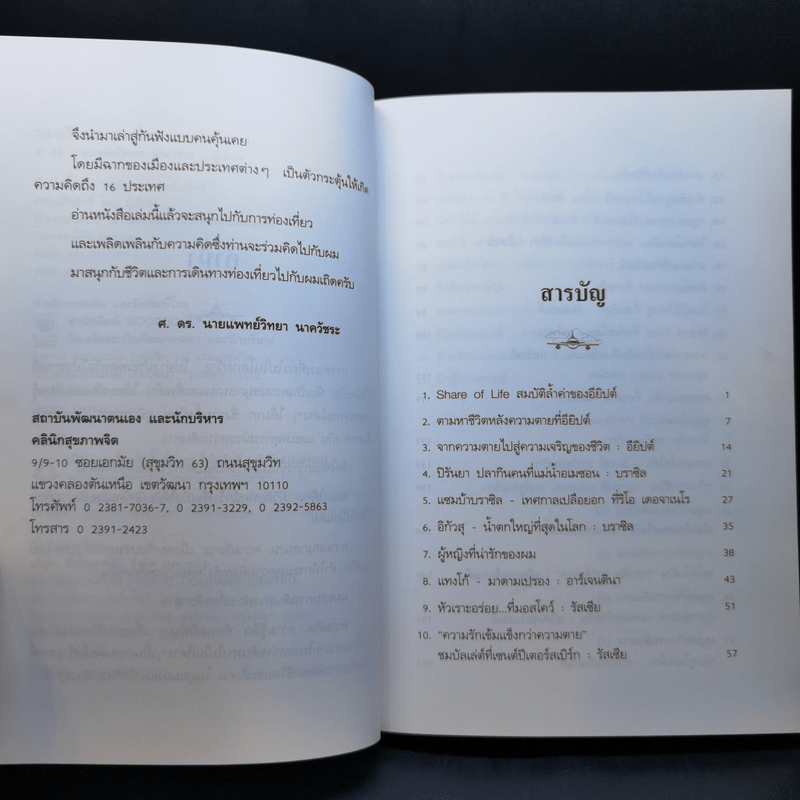 จึงนำมาเล่าสู่กันฟังแบบคนคุ้นเคย
โดยมีฉากของเมืองและประเทศต่างๆ เป็นตัวกระตุ้นให้เกิด
ความคิดถึง 16 ประเทศ
อ่านหนังสือเล่มนี้แล้วจะสนุกไปกับการท่องเที่ยว
และเพลิดเพลินกับความคิดซึ่งท่านจะร่วมคิดไปกับผม
มาสนุกกับชีวิตและการเดินทางท่องเที่ยวไปกับผมเถิดครับ
ศ. ดร. นายแพทย์วิทยา นาควัชระ
สถาบันพัฒนาตนเอง และนักบริหาร
คลินิกสุขภาพจิต
9/9-10 ซอยเอกมัย (สุขุมวิท 63) ถนนสุขุมวิท
แขวงคลองตันเหนือ เขตวัฒนา กรุงเทพฯ 10110
โทรศัพท์ 0 2381-7036-7, 0 2391-3229, 0 2392-5863
โทรสาร 0 2391-2423
สารบัญ
1. Share of Life สมบัติล้ำค่าของอียิปต์ 1
2. ตามหาชีวิตหลังความตายที่อียิปต์ 7
3. จากความตายไปสู่ความเจริญของชีวิต : อียิปต์ 14
4. ปิรันยา ปลากินคนที่แม่น้ำอเมซอน : บราซิล 21
5. แซมบ้าบราซิล - เทศกาลเปลือยอก ที่ริโอ เดอจาเนโร 27
6. อิกัวสุ - น้ำตกใหญ่ที่สุดในโลก : บราซิล 35
7. ผู้หญิงที่น่ารักของผม 38
8. แทงโก้ - มาดามเปรอง : อาร์เจนตินา 43
9. หัวเราะอร่อย...ที่มอสโคว์ : รัสเซีย 51
10. "ความรักเข้มแข็งกว่าความตาย"
ชมบัลเล่ต์ที่เซนต์ปีเตอร์สเบิร์ก : รัสเซีย 57